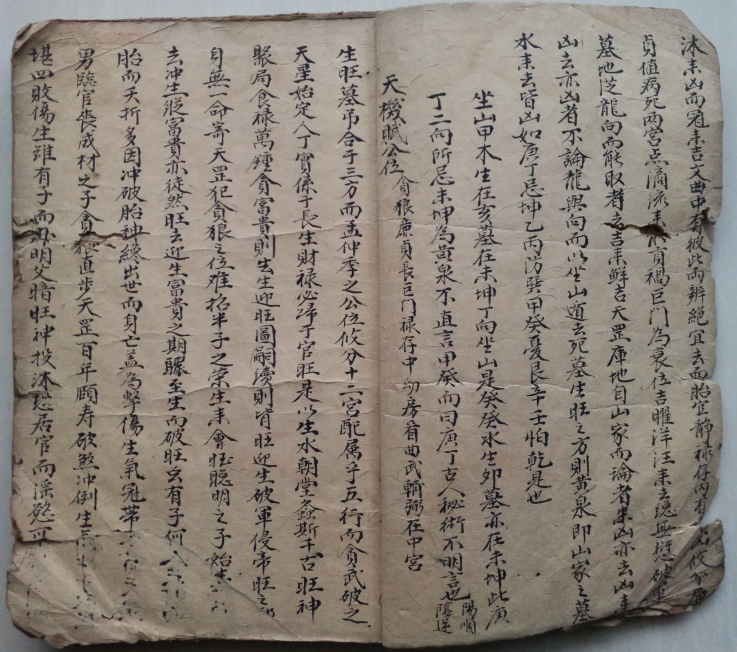 沐来凶而冠来吉文曲中有彼此而辨絕宜去而胎宜靜禄存內有
貞值病死两宫点滴流来有貞禍巨門為衰位吉曜洋汪来去總無愆破軍
墓地芝龍向而能取者去吉来鲜吉天罡庫地自山家而論者来凶亦去凶来
凶去亦凶者不論龍與向而以坐山道去死墓生旺之方則黄泉即山家之墓
水来去皆凶如庚丁忌坤乙丙防巽甲癸憂艮辛壬怕乾是也
坐山甲木生在亥墓在未坤丁向坐山是癸癸水生卯墓亦在未坤此庚
丁二向所忌未坤為黄泉不直言甲癸而曰庚丁古人秘術不明言也 陽順陰逆
天機賦公位 貪狼廉貞長巨門禄存中幼房看曲武輔弼在中宮
生旺墓吊合于三方而孟仲季之公位攸分十二宮配属乎五行而貪武破之
天星始定人丁實係于長生財禄必歸于官旺是以生水朝堂螽斯千古旺神
聚局食禄萬鍾貪富貴則去生迎旺圖嗣續則背旺迎生破軍侵帝旺之
身無一命寄天罡犯貪狼之位难招半子之榮生来會旺聰明之子始
去冲生縱富貴亦徒然旺去迎生富貴之期驟至生而破旺玄有子何
胎而夭折多因冲破胎神纔出世而身亡盖為擊傷生氣冠帶
男臨官喪成材之子貪狼直步天罡百年頤寿破煞冲倒生
堪四敗傷生雖有子而母明父暗旺神投沐恐居官而淫慾可